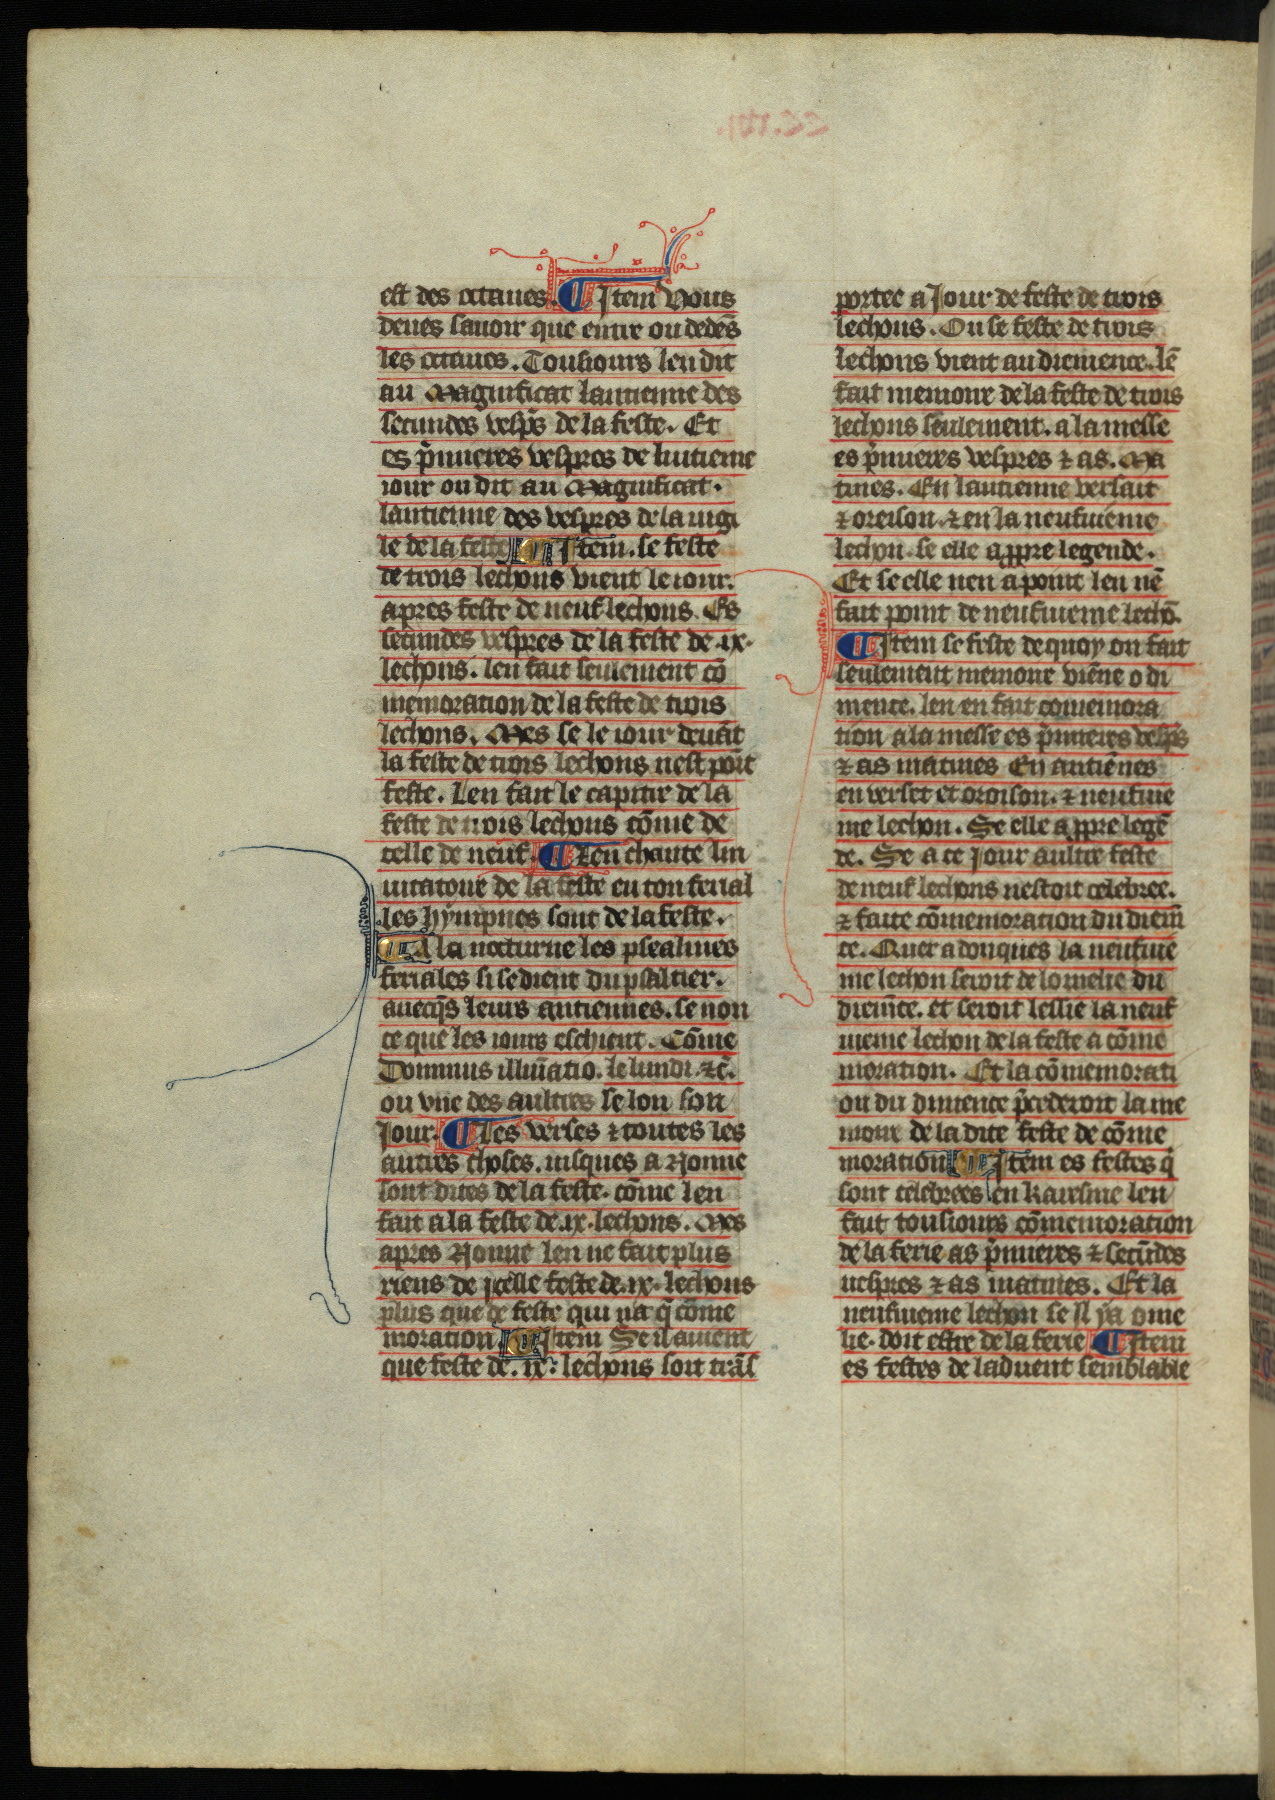 est des octaues. ¶ Item Vous
deues sauoir que entre ou dedēs
les octaues. Tousiours len dit
au Magnificat lantienne des
secundes vesp̄s de la feste. Et
es p̄mieres vespres de luitieme
iour ou dit au Magnificat.
lantienne des vespres de la uigi
le de la feste ¶ Item. se feste
de trois lechons vient le iour.
apres feste de neuf lechons. Es
secundes vespres de la feste de .ix.
lechons. len fait seulement cō
memoration de la feste de trois
lechons. Mes se le iour deuāt
la feste de trois lechons nest point
feste. Len fait le capitre de la
feste de trois lechons cōme de
celle de neuf. ¶ Len chante lin
uitatoire de la feste en ton ferial
les hympnes sont de la feste.
¶ A la nocturne les psealmes
feriales si se dient du psaltier.
auecq̄s leurs antiennes. se non
ce que les iours eschient. Cōme
Dominus illuīatio. le lundi. ⁊c̄.
ou vne des aultres selon son
Jour. ¶ Les verses ⁊ toutes les
autres choses. iusques a Nonne
sont dites de la feste. cōme len
fait a la feste de .ix. lechons. Mes
apres Nonne len ne fait plus
riens de jcelle feste de .ix. lechons
plus que de feste qui na q̄ cōme
moration. ¶ Item Se il auient
que feste de .ix. lechons soit trās
portee a Jour de feste de trois
lechons. Ou se feste de trois
lechons vient au diemence. lē
fait memoire de la feste de trois
lechons seulement. a la messe
es p̄mieres vespres ⁊ as. Ma
tines. En lantienne versait
⁊ oreison. ⁊ en la neufuieme
lechon. se elle a ppre legende.
Et se elle nen a point len nē
fait point de neufuieme lechō.
¶ Item se feste de quoy on fait
seulement memoire viēne o di
mence. len en fait comemora
tion a la messe es p̄mieres vesp̄s
⁊ as matines En antiēnes
en verset et oroison. ⁊ neufuie
me lechon. Se elle a ppre legē
de. Se a ce Jour aultre feste
de neuf lechons nestoit celebree.
⁊ faite cōmemoration du diem̄
ce. Quer adonques la neufuie
me lechon seroit de lomelie du
diem̄ce. et seroit lessie la neuf
uieme lechon de la feste a cōme
moration. Et la cōmemorati
on du dimence p̄cederoit la me
moire de la dite feste de cōme
moration ¶ Item es festes q̄
sont celebrees en karesme len
fait tousiours cōmemoration
de la ferie as p̄mieres ⁊ secūdes
uespres ⁊ as matines. Et la
neufuieme lechon se Jl ya ome
lie. doit estre de la ferie ¶ Item
es festes de laduent semblable